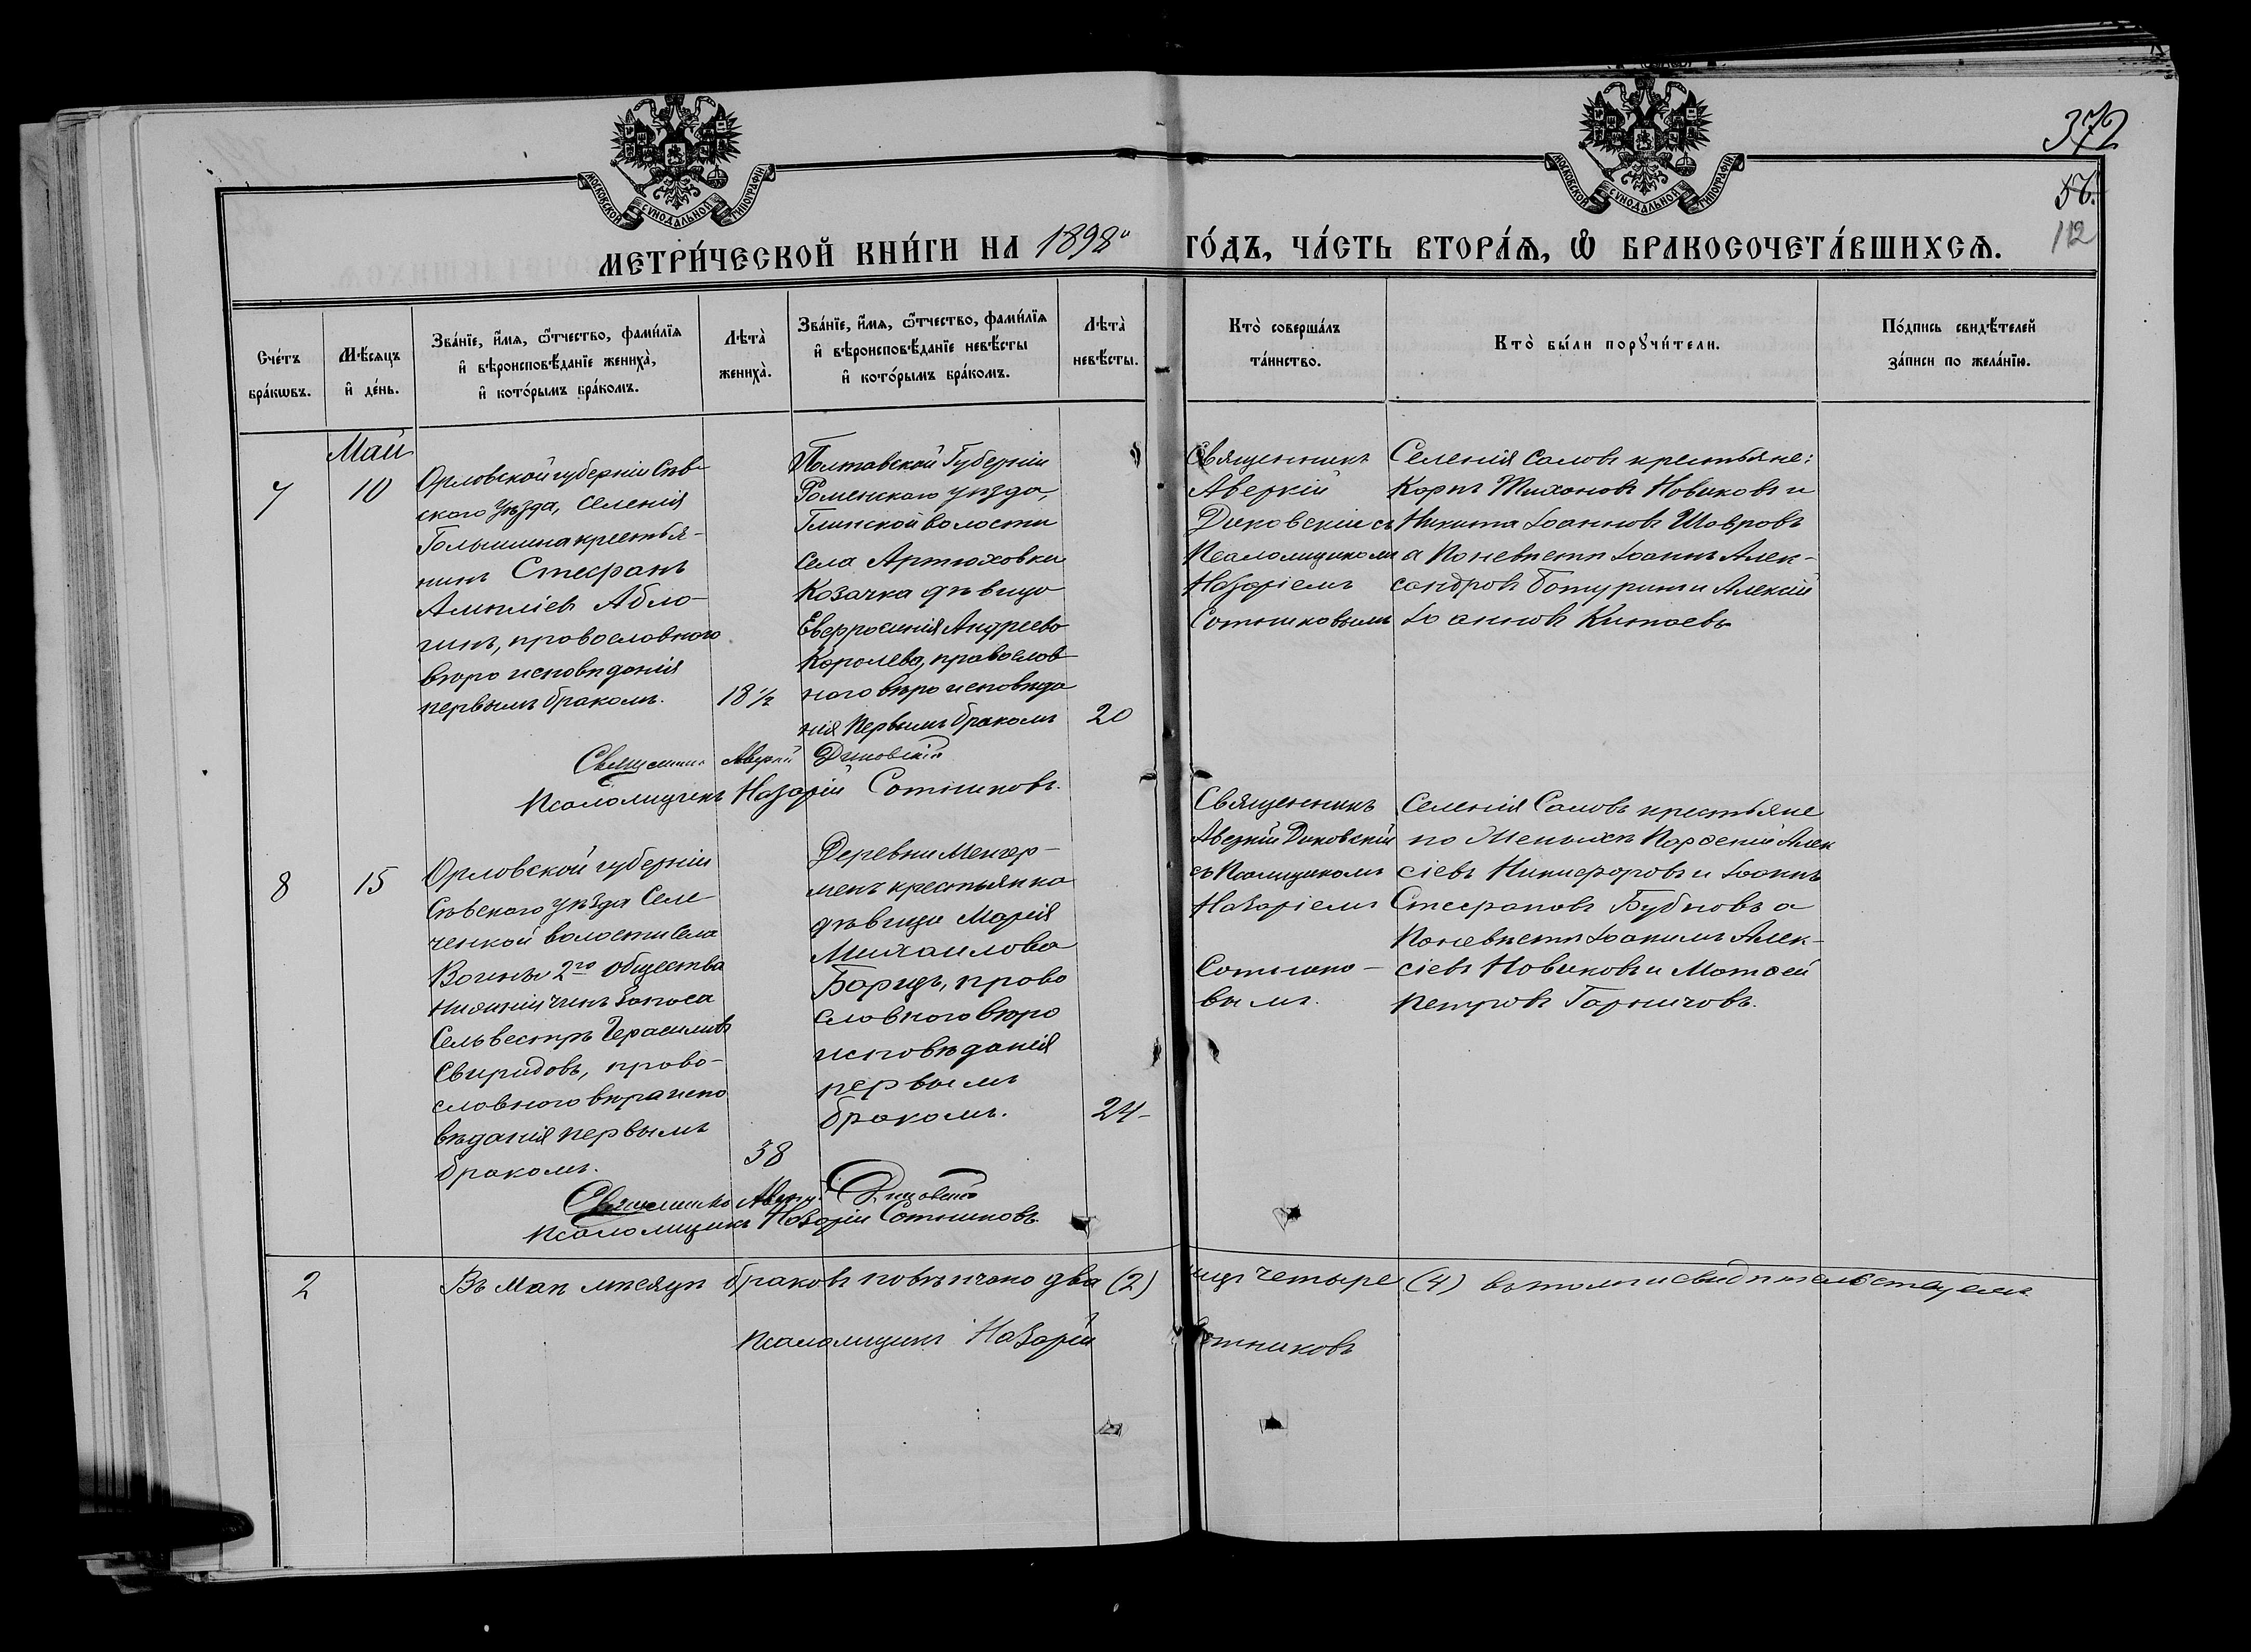 МОСКОВСКОЙ СѴНОДАЛЬНОЙ ТИПОГРАФІИ
МОСКОВСКОЙ СѴНОДАЛЬНОЙ ТИПОГРАФІИ
372
56.
112
МЕТРИ́ЧЕСКОЙ КНИ́ГИ НА 1898й ГО́ДЪ, ЧА́СТЬ ВТОРА́Ѧ, Ѽ БРАКОСОЧЕТА́ВШИХСѦ.
Сче́тъ
бра́кѡвъ.
Мѣ́сяцъ
и҆ де́нь.
Зва́нїе, и҆́мѧ, ѻ҆́тчество, фами́лїѧ
и҆ вѣроисповѣ́данїе жениха̀,
и҆ кото́рымъ бра́комъ.
Лѣта̀
жениха̀.
Зва́нїе, и҆́мѧ, ѻ҆́тчество, фами́лїѧ
и҆ вѣроисповѣ́данїе невѣ́сты
и҆ кото́рымъ бра́комъ.
Лѣта̀
невѣ́сты.
Кто̀ соверша́лъ
та́инство.
Кто̀ бы́ли порꙋчи́тели.
По́дпись свидѣ́телей
за́писи по жела́нїю.
Май
7
10
Орловской губерніи Сѣв-
скаго уѣзда, селенія
Голышина крестья-
нинъ Стефанъ
Ампліевъ Абло-
гинъ, православнаго
вѣроисповѣданія
первымъ бракомъ.
18 ½
Полтавской Губерніи
Роменскаго уѣзда,
Глинской волости
Села Артюховки
Козачка дѣвица
Евфросинія Андреева
Королева, православ
наго вѣроисповѣда
нія Первымъ бракомъ
20
Священникъ
Аверкій
Диковскій съ
Псаломщикомъ
Назаріемъ
Сотниковымъ
Селенія Саловъ крестьяне:
Карпъ Тихоновъ Новиковъ и
Никита Іоанновъ Шавровъ
а Поневѣстѣ Іоаннъ Алек-
сандровъ Батуринъ и Алексій
Іоанновъ Китаевъ
Священникъ Аверкій Диковскій
Псаломщикъ Назарій Сотниковъ.
8
15
Орловской губерніи
Сѣвскаго уѣзда Селе-
ченской волости Села
2го общества
Нижній чинъ Запаса
Сельвестръ Герасимовъ
Свиридовъ, право-
славнаго вѣроиспо
вѣданія первымъ
бракомъ.
38
Деревни Менгер-
менъ крестьянка
дѣвица Марія
Михаилова
Борищъ, право
славнаго вѣро
исповѣданія
первымъ
бракомъ.
24-
Священникъ
Аверкій Диковскій
съ Псаломщикомъ
Назаріемъ
Сотнико-
вымъ.
Селенія Саловъ крестьяне
по Женихѣ Парѳеній Алек
сіевъ Никифоровъ и Іоаннъ
Стефановъ Бубновъ а
Поневѣстѣ Іоакимъ Алек-
сіевъ Новиковъ и Матѳей
Петровъ Горничовъ.
Священникъ Аверкій Диковскій
Псаломщикъ Назарій Сотниковъ.
2
Въ Маѣ мѣсяцѣ браковъ повѣнчано два (2) лицъ четыре (4) въ томъ и свидѣтельствуемъ.
Псаломщикъ Назарій Сотниковъ